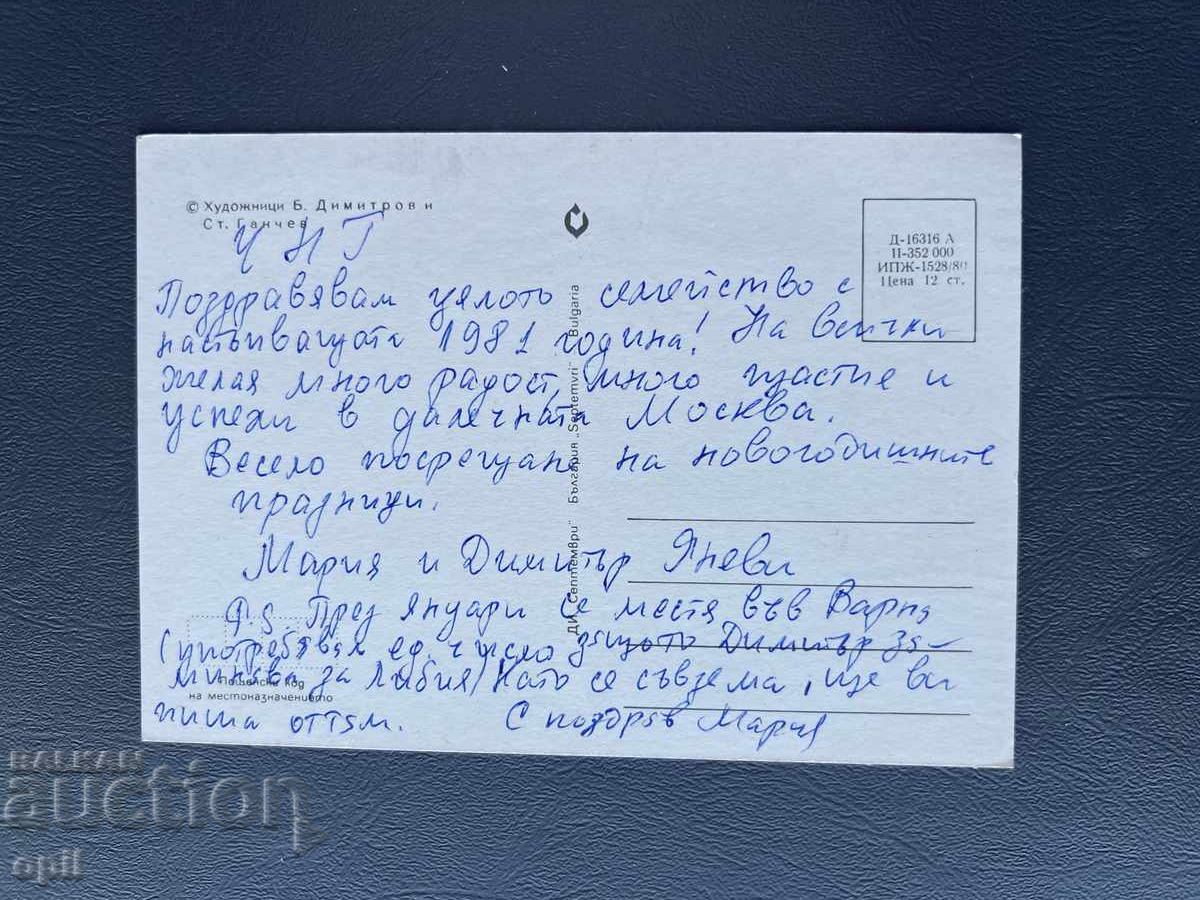 © Художници Б. Димитров и
Ст. Ганчев
Д-16316 А
II-352 000
ИПЖ-1528/80
Цена 12 ст.
ЧНГ
Поздравявам цялото семейство с
настъпващата 1981 година! На всички
желая много радост, много щастие и
успехи в далечната Москва.
Весело посрещане на новогодишните
празници.
Мария и Димитър Яневи
P.S. През януари се местя във Варна
(употребявам ед. число защото Димитър за-
минава за Либия) Като се съвзема, ще ви
пиша оттам. С поздрав Мария
ДИ „Септември" България „Septemvri" Bulgaria
Пощенски код
на местоназначението
BALKAN
auction
opil